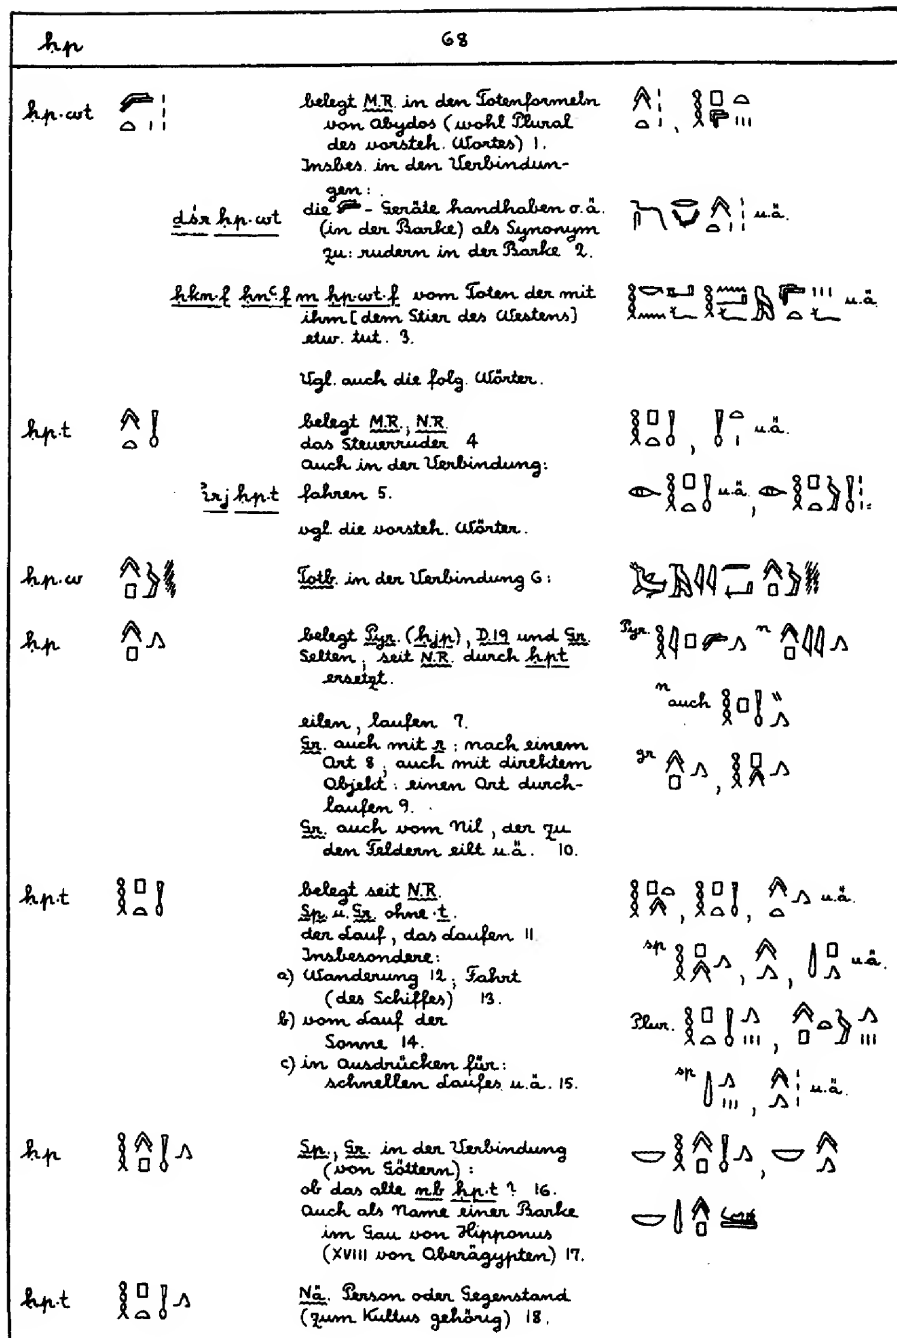 ḥp 68
ḥp.wt belegt M.R. in den Totenformeln
von Abydos (wohl Plural
des vorsteh. Wortes) 1.
Insbes. in den Verbindun-
gen:
dśr ḥp.wt die - Geräte handhaben o.ä. u.ä.
(in der Barke) als Synonym
zu: rudern in der Barke 2.
ḥkn.f ḥnꜥ.f m ḥp.wt.f vom Toten der mit
ihm [dem Stier des Westens] u.ä.
etw. tut. 3.
Vgl. auch die folg. Wörter.
ḥp.t belegt M.R., N.R.
das Steuerruder 4 u.ä.
auch in der Verbindung:
ı͗rj ḥp.t fahren 5. u.ä.
vgl. die vorsteh. Wörter.
ḥp.w Totb. in der Verbindung 6:
ḥp belegt Pyr. (ḥjp), D.19 und Gr. Pyr. n
Selten; seit N.R. durch ḥpt
ersetzt. n auch
eilen, laufen 7.
Gr. auch mit r: nach einem
Ort 8; auch mit direktem gr
Objekt: einen Ort durch-
laufen 9.
Gr. auch vom Nil, der zu
den Feldern eilt u.ä. 10.
ḥp.t belegt seit N.R. u.ä.
Sp. u. Gr. ohne .t.
der Lauf, das Laufen 11.
Insbesondere: sp u.ä.
a) Wanderung 12; Fahrt
(des Schiffes) 13.
b) vom Lauf der Plur.
Sonne 14.
c) in Ausdrücken für:
schnellen Laufes u.ä. 15. sp u.ä.
ḥp Sp., Gr. in der Verbindung
(von Göttern):
ob das alte nb ḥp.t? 16.
Auch als Name einer Barke
im Gau von Hipponus
(XVIII von Oberägypten) 17.
ḥp.t Nä. Person oder Gegenstand
(zum Kultus gehörig) 18.